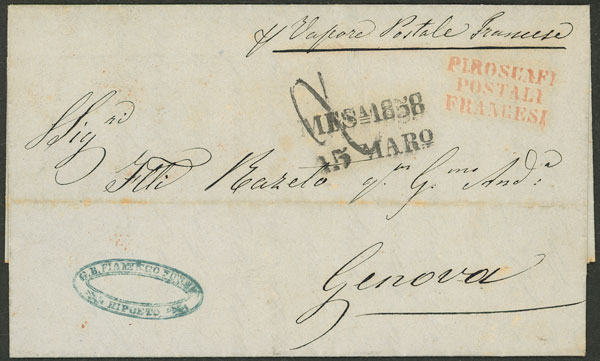 p Vapore Postale Francese
PIROSCAFI
POSTALI
FRANCESI
MESA. 1858
15 MARO
2
Sigri
Flli Razeto qm Gmo Anda
Genova
G. B. FIAMINGO
RIPOSTO